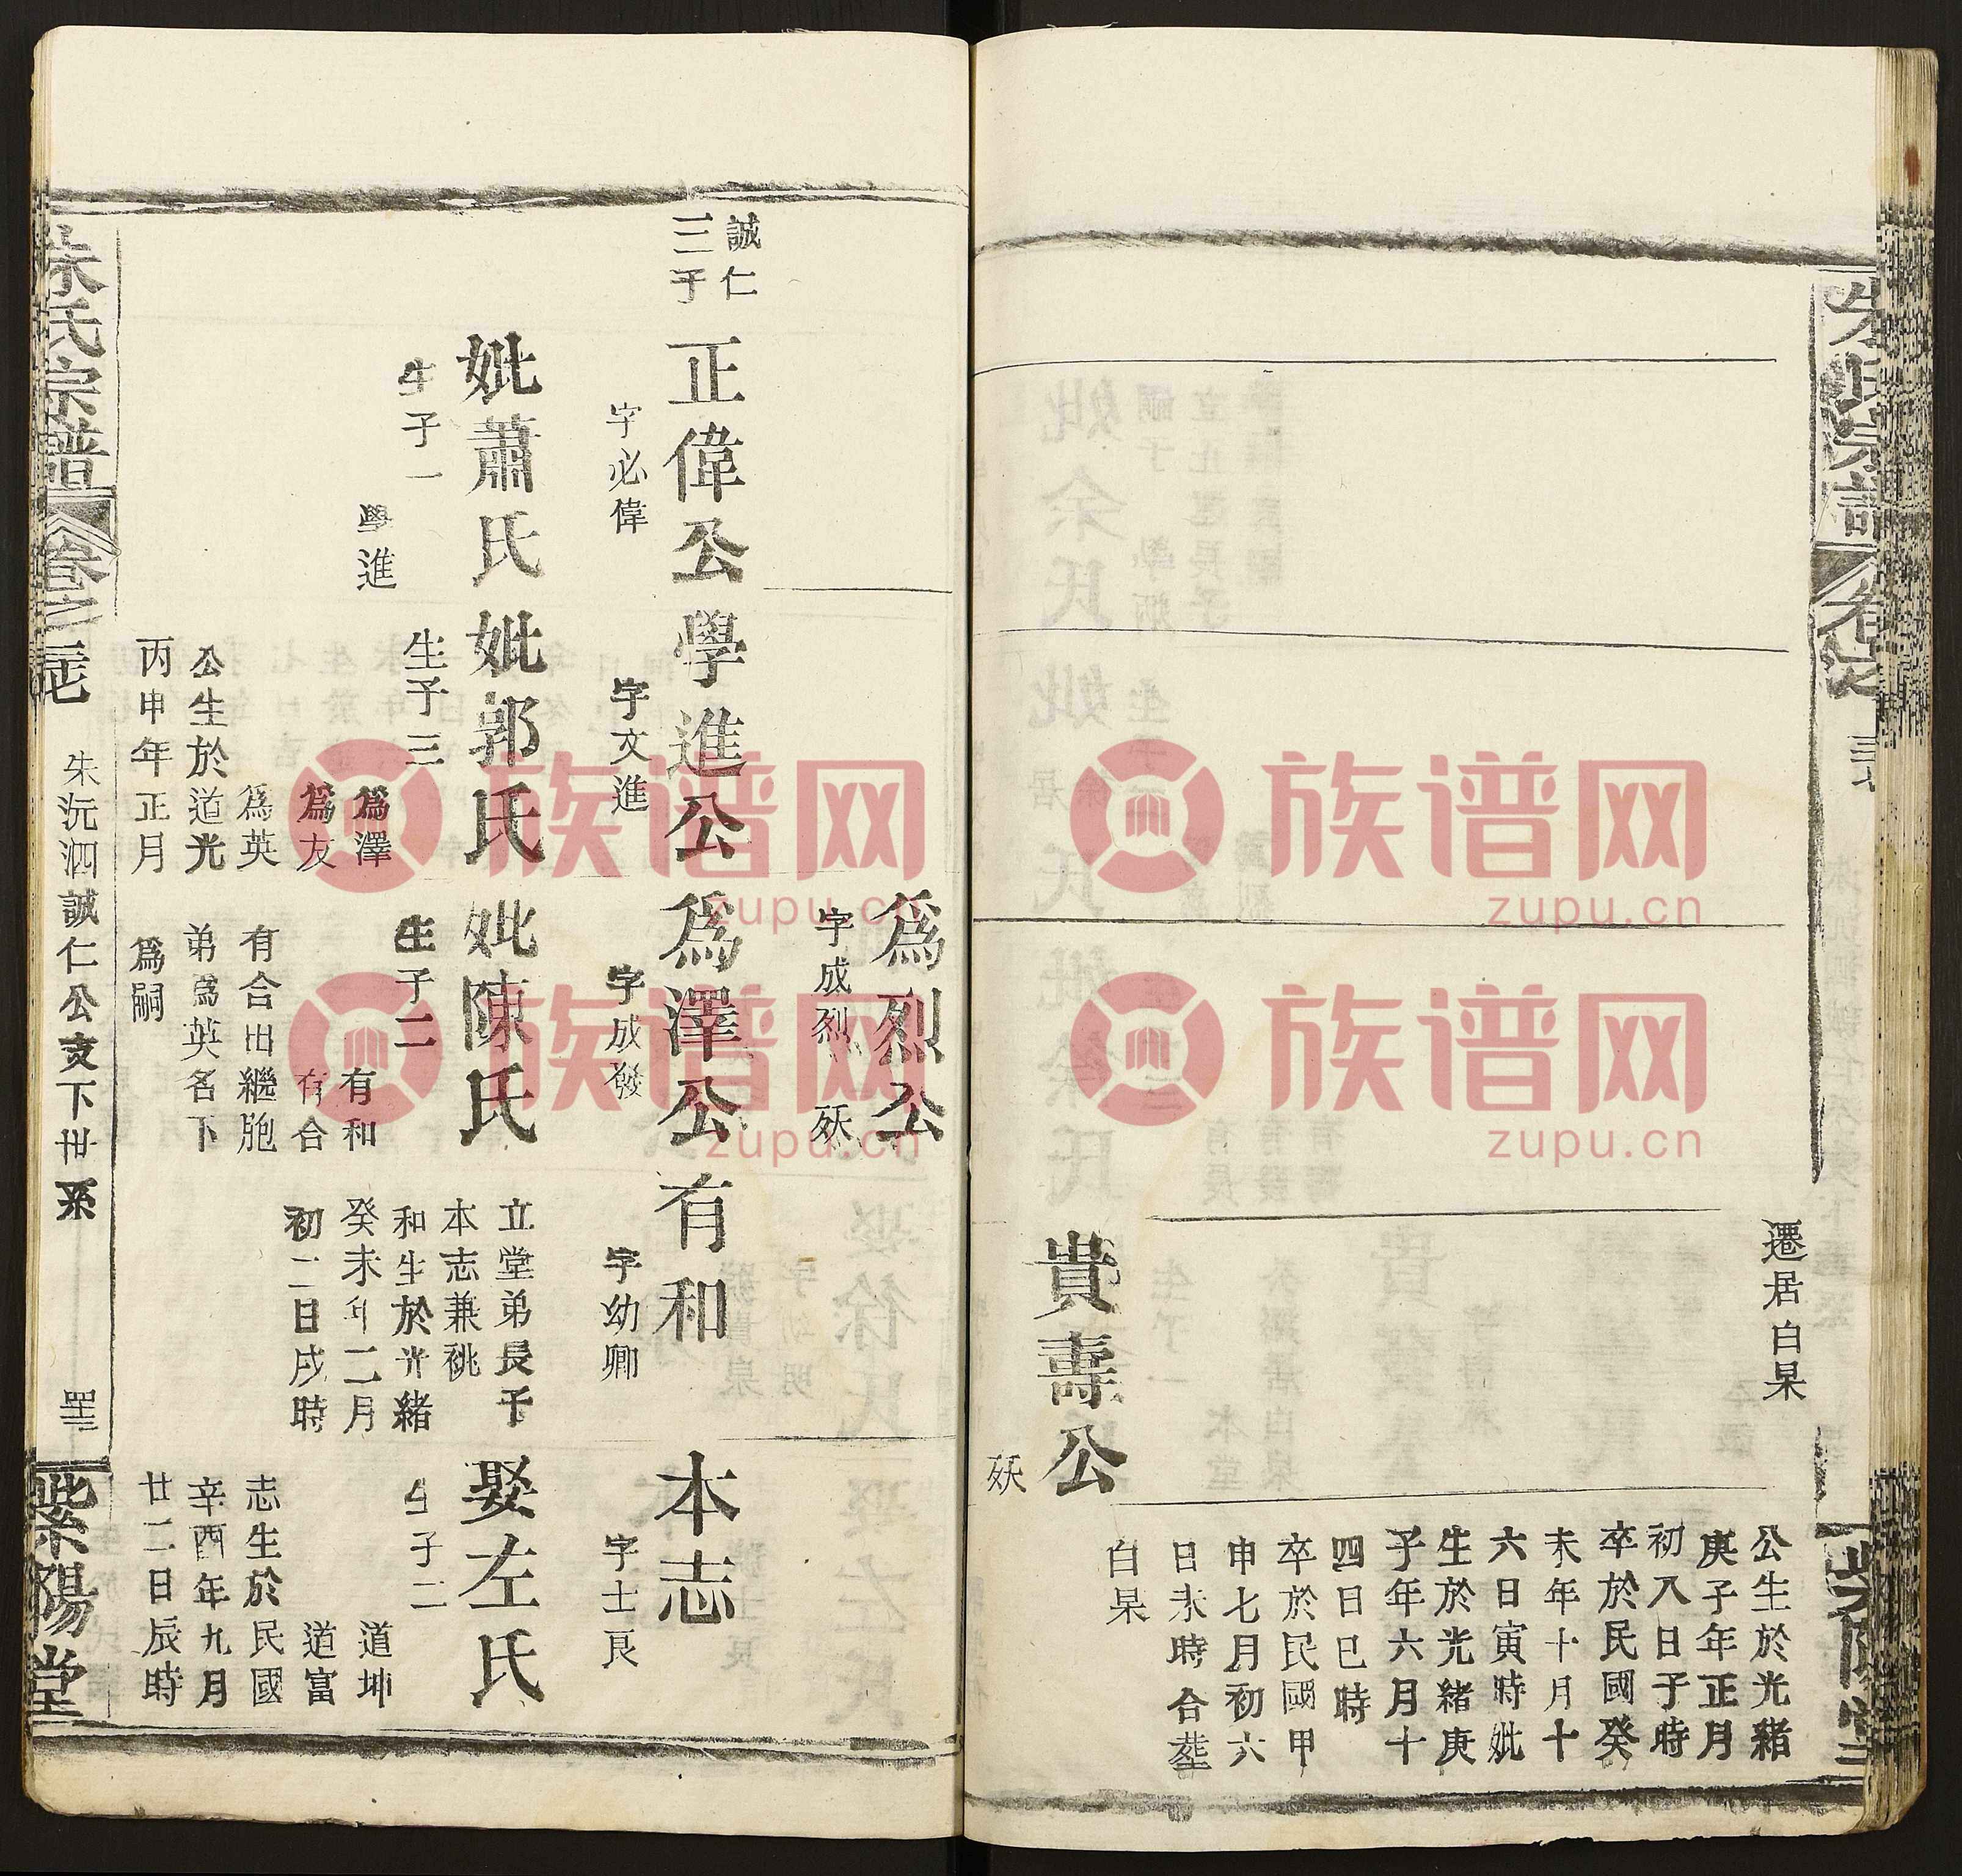 遷居白杲
公生於光緒
庚子年正月
初八日子時
卒於民國癸
未年十月十
六日寅時妣
生於光緒庚
子年六月十
四日巳時
卒於民國甲
申七月初六
日未時合塟
白杲
貴壽公
殀
為烈公
字成烈 殀
誠仁
三子
正偉公
字必偉
妣蕭氏
生子一
學進
學進公
字文進
妣郭氏
生子三
為澤
為友
為英
公生於道光
丙申年正月
為澤公
字成發
妣陳氏
生子二
有和
有合
有合出繼胞
弟為英名下
為嗣
有和
字幼卿
立堂弟長子
本志兼祧
和生於光緒
癸未年二月
初二日戌時
本志
字士良
娶左氏
生子二
道坤
道富
志生於民國
辛酉年九月
廿二日辰時
朱氏宗譜
卷之
朱沅泗誠仁公支下世系
紫陽堂
族谱网
zupu.cn
族谱网
zupu.cn
族谱网
zupu.cn
族谱网
zupu.cn